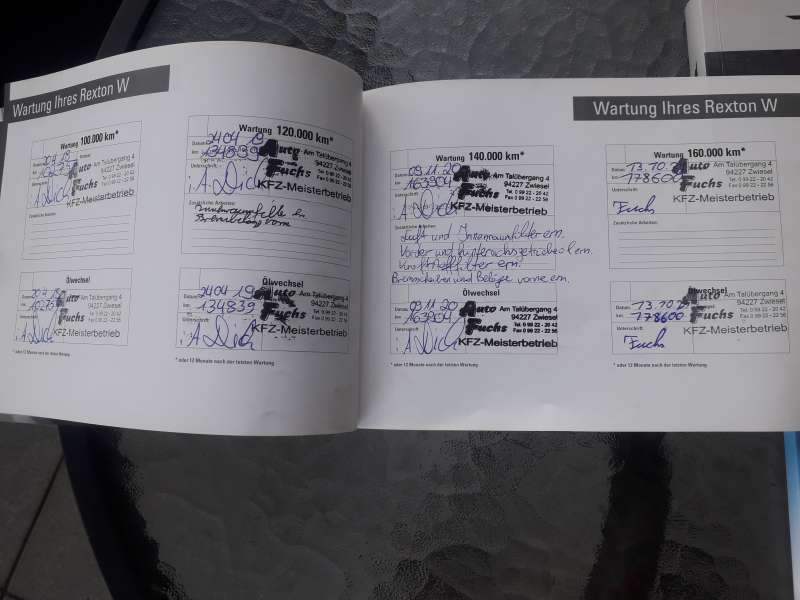 Wartung Ihres Rexton W
Wartung 100.000 km*
Datum:
km:
Auto Am Talübergang 4
94227 Zwiesel
Tel. 0 99 22 - 20 42
Fax 0 99 22 - 22 56
Fuchs
KFZ-Meisterbetrieb
Unterschrift:
i.A. Dich
Zusätzliche Arbeiten:
Ölwechsel
Datum:
km:
Auto Am Talübergang 4
94227 Zwiesel
Tel. 0 99 22 - 20 42
Fax 0 99 22 - 22 56
Fuchs
KFZ-Meisterbetrieb
i.A. Dich
* oder 12 Monate nach der letzten Wartung
Wartung 120.000 km*
Datum: 24 04 19
km: 134839
Auto Am Talübergang 4
94227 Zwiesel
Tel. 0 99 22 - 20 42
Fax 0 99 22 - 22 56
Fuchs
KFZ-Meisterbetrieb
Unterschrift:
i.A. Dich
Zusätzliche Arbeiten:
vorn
Ölwechsel
Datum: 24 04 19
km: 134839
Auto Am Talübergang 4
94227 Zwiesel
Tel. 0 99 22 - 20 42
Fax 0 99 22 - 22 56
Fuchs
KFZ-Meisterbetrieb
i.A. Dich
* oder 12 Monate nach der letzten Wartung
Wartung Ihres Rexton W
Wartung 140.000 km*
Datum: 09.11.20
km: 163904
Auto Am Talübergang 4
94227 Zwiesel
Tel. 0 99 22 - 20 42
Fax 0 99 22 - 22 56
Fuchs
KFZ-Meisterbetrieb
Unterschrift:
i.A. Dich
Zusätzliche Arbeiten:
Luft und Innenraumfilter ern.
Vorder und Hinterachsgetriebeöl ern.
Kraftstofffilter ern.
Bremsscheiben und Beläge vorne ern.
Ölwechsel
Datum: 09.11.20
km: 163904
Auto Am Talübergang 4
94227 Zwiesel
Tel. 0 99 22 - 20 42
Fax 0 99 22 - 22 56
Fuchs
KFZ-Meisterbetrieb
Unterschrift:
i.A. Dich
* oder 12 Monate nach der letzten Wartung
Wartung 160.000 km*
Datum: 13.10.
km: 178600
Auto Am Talübergang 4
94227 Zwiesel
Tel. 0 99 22 - 20 42
Fax 0 99 22 - 22 56
Fuchs
KFZ-Meisterbetrieb
Unterschrift:
Fuchs
Zusätzliche Arbeiten:
Ölwechsel
Datum: 13.10.
km: 178600
Auto Am Talübergang 4
94227 Zwiesel
Tel. 0 99 22 - 20 42
Fax 0 99 22 - 22 56
Fuchs
KFZ-Meisterbetrieb
Unterschrift:
Fuchs
* oder 12 Monate nach der letzten Wartung